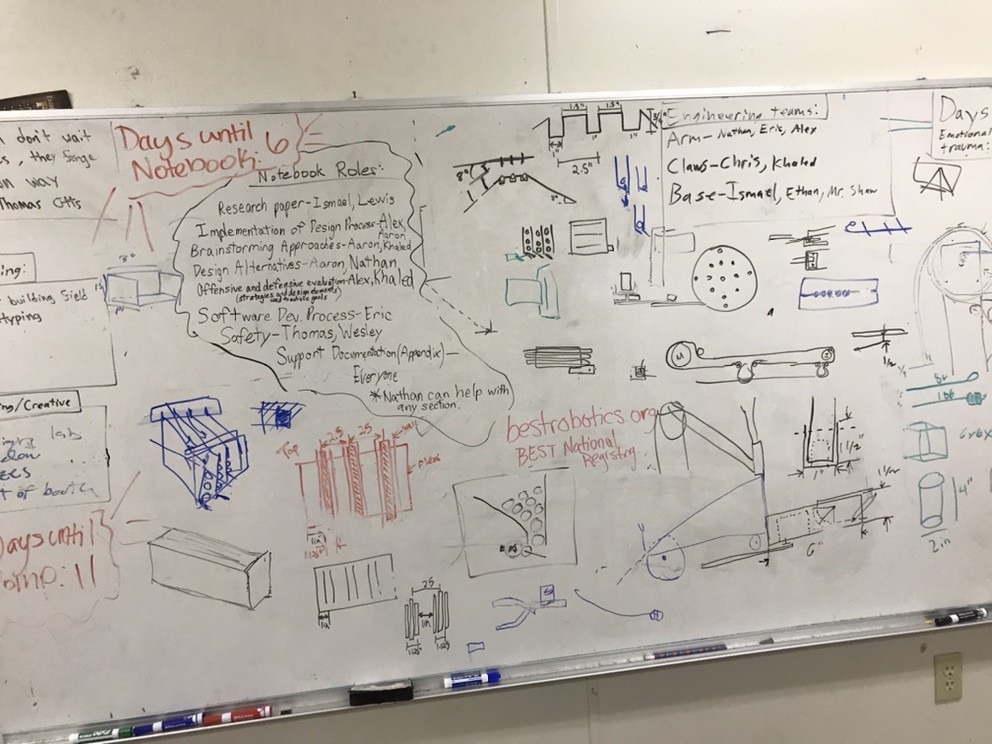 don't wait
, they
on way
Thomas
Days until
Notebook: 6
Notebook Roles:
Research paper-Ismael, Lewis
Implementation of Design Process-Alex,
Aaron
Brainstorming Approaches-Aaron, Khaled
Design Alternatives-Aaron, Nathan
Offensive and defensive evaluation-Alex, Khaled
(strategies and design elements)
Software Dev. Process-Eric
Safety-Thomas, Wesley
Support Documentation (Appendix)-
Everyone
*Nathan can help with
any section.
Engineering teams:
Arm-Nathan, Eric, Alex
Claws-Chris, Khaled
Base-Ismael, Ethan, Mr. Shaw
Days
Emotional
trauma:
ing:
building field
typing
ing/Creative
lab
t of booth
Days until
omp: 11
1.5"
1.5"
1"
1"
2.5"
8"
8"
bestrobotics.org
BEST National
Registry
Top
25
25
1in
1.125"
M
1/2
1 1/2"
1"
1 1/2"
6"
6x6x
4"
2in
1in
25
1in
1.125"
1.125"